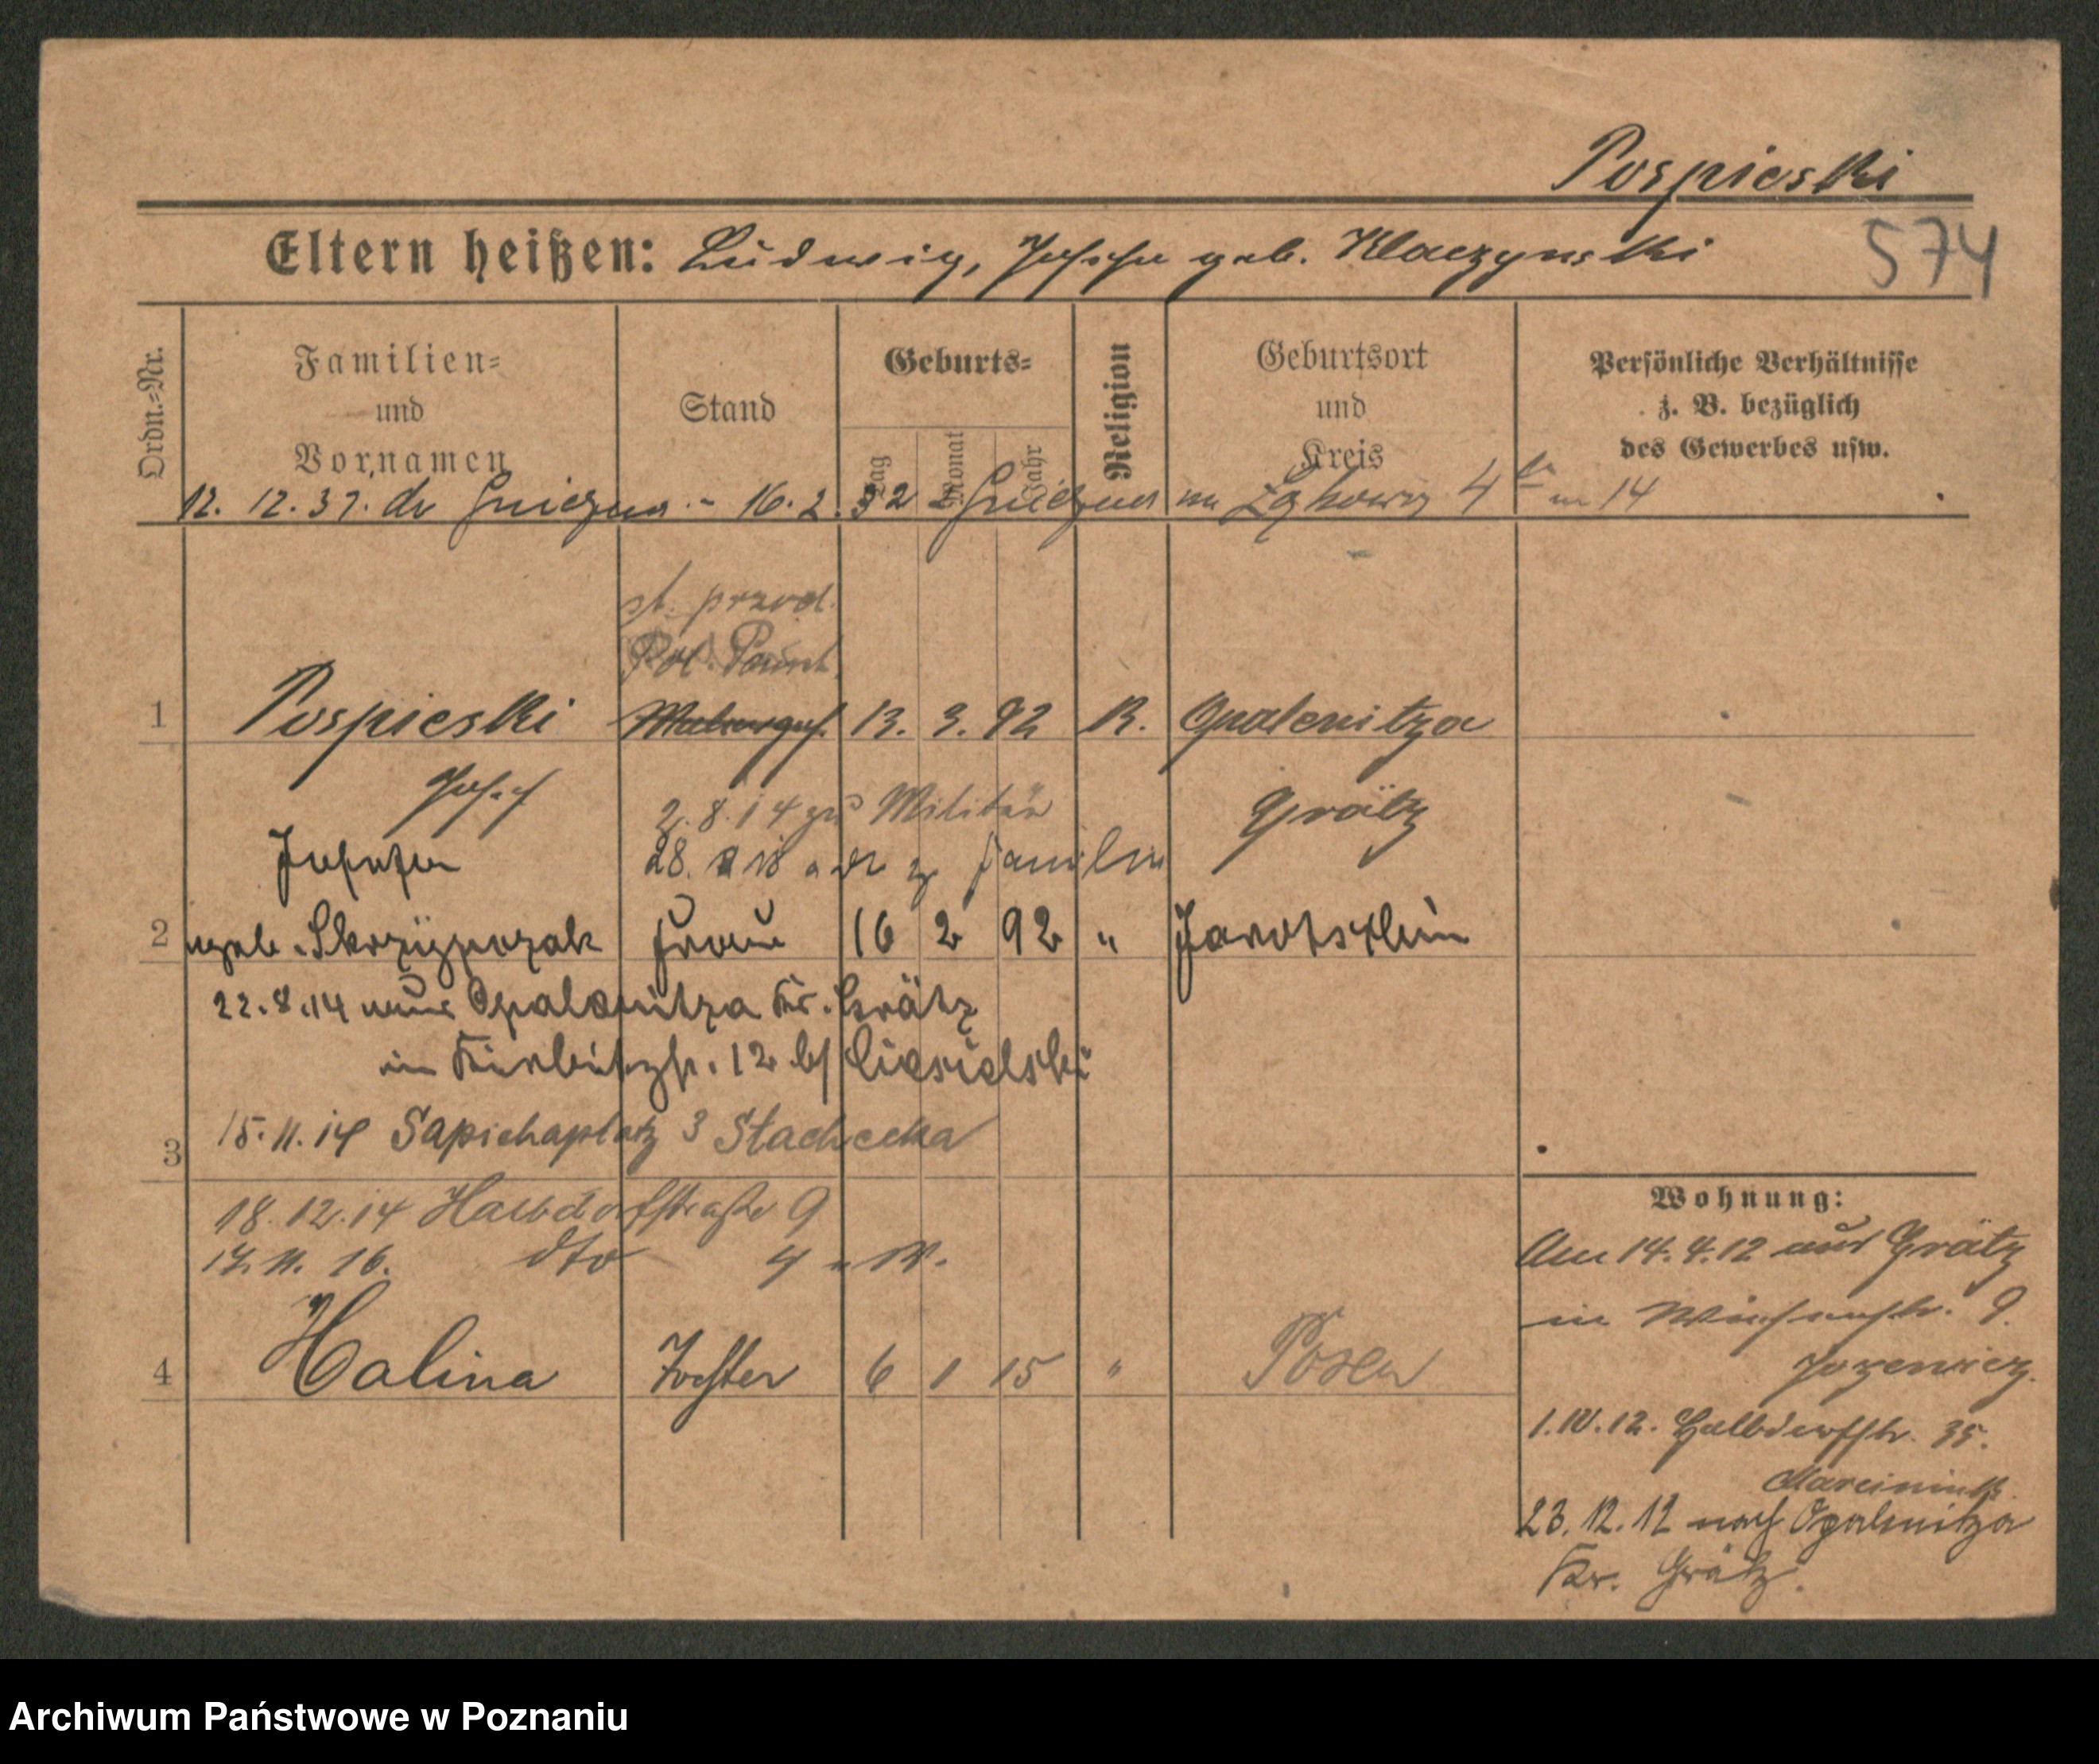 Pospieski
Eltern heißen: Ludwig, Josefa geb. Klaczynski
574
Ordn.-Nr.
Familien-
und
Vornamen
Stand
Geburts-
Tag
Monat
Jahr
Religion
Geburtsort
und
Kreis
Persönliche Verhältnisse
z. B. bezüglich
des Gewerbes usw.
12. 12. 31. do Gniezna - 16. 2. 32 z Gniezna na 14
st. przod.
Pol. Państ.
1 Pospieski 13. 3. 92 R. Opalenitza
Josef Grätz
2. 8. 14 zum Militär
28. 18 zur Familie
Josefa
2 geb. Frau 16 2 92 " Jarotschin
22.8.14 aus Opalenitza Kr. Grätz
in 12 b/ Ciesielski
3 15.11.14 Sapiehaplatz 3 Stachecka
18.12.14 Halbdorfstraße 9
17.11.16. dto 4
4 Halina Tochter 6 1 15 " Posen
Wohnung:
Am 14.4.12 aus Grätz
in 9.
1.10.12. Halbdorfstr. 35.
23.12.12 nach Opalenitza
Kr. Grätz.
Archiwum Państwowe w Poznaniu